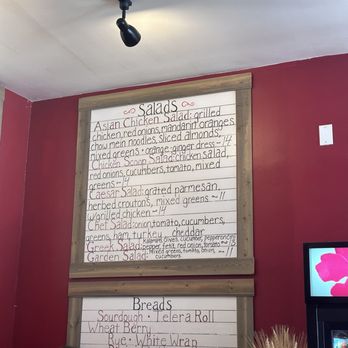 Salads
Asian Chicken Salad: grilled
chicken, red onions, mandarin oranges
chow mein noodles, sliced almonds,
mixed greens • orange-ginger dress ~ 14
Chicken Scoop Salad: chicken salad,
red onions, cucumbers, tomato, mixed
greens ~ 14
Caesar Salad: grated parmesan,
herbed croutons, mixed greens ~ 11
w/grilled chicken ~ 14
Chef Salad: onion, tomato, cucumbers,
greens, ham, turkey, cheddar
Greek Salad: Kalamata olives, cucumber, pepperoncini,
pepper, feta, red onion, tomato ~ 13
Garden Salad: Mixed greens, tomato, onion, ~ 11
cucumbers
Breads
Sourdough • Telera Roll
Wheat Berry
Rye • White Wrap